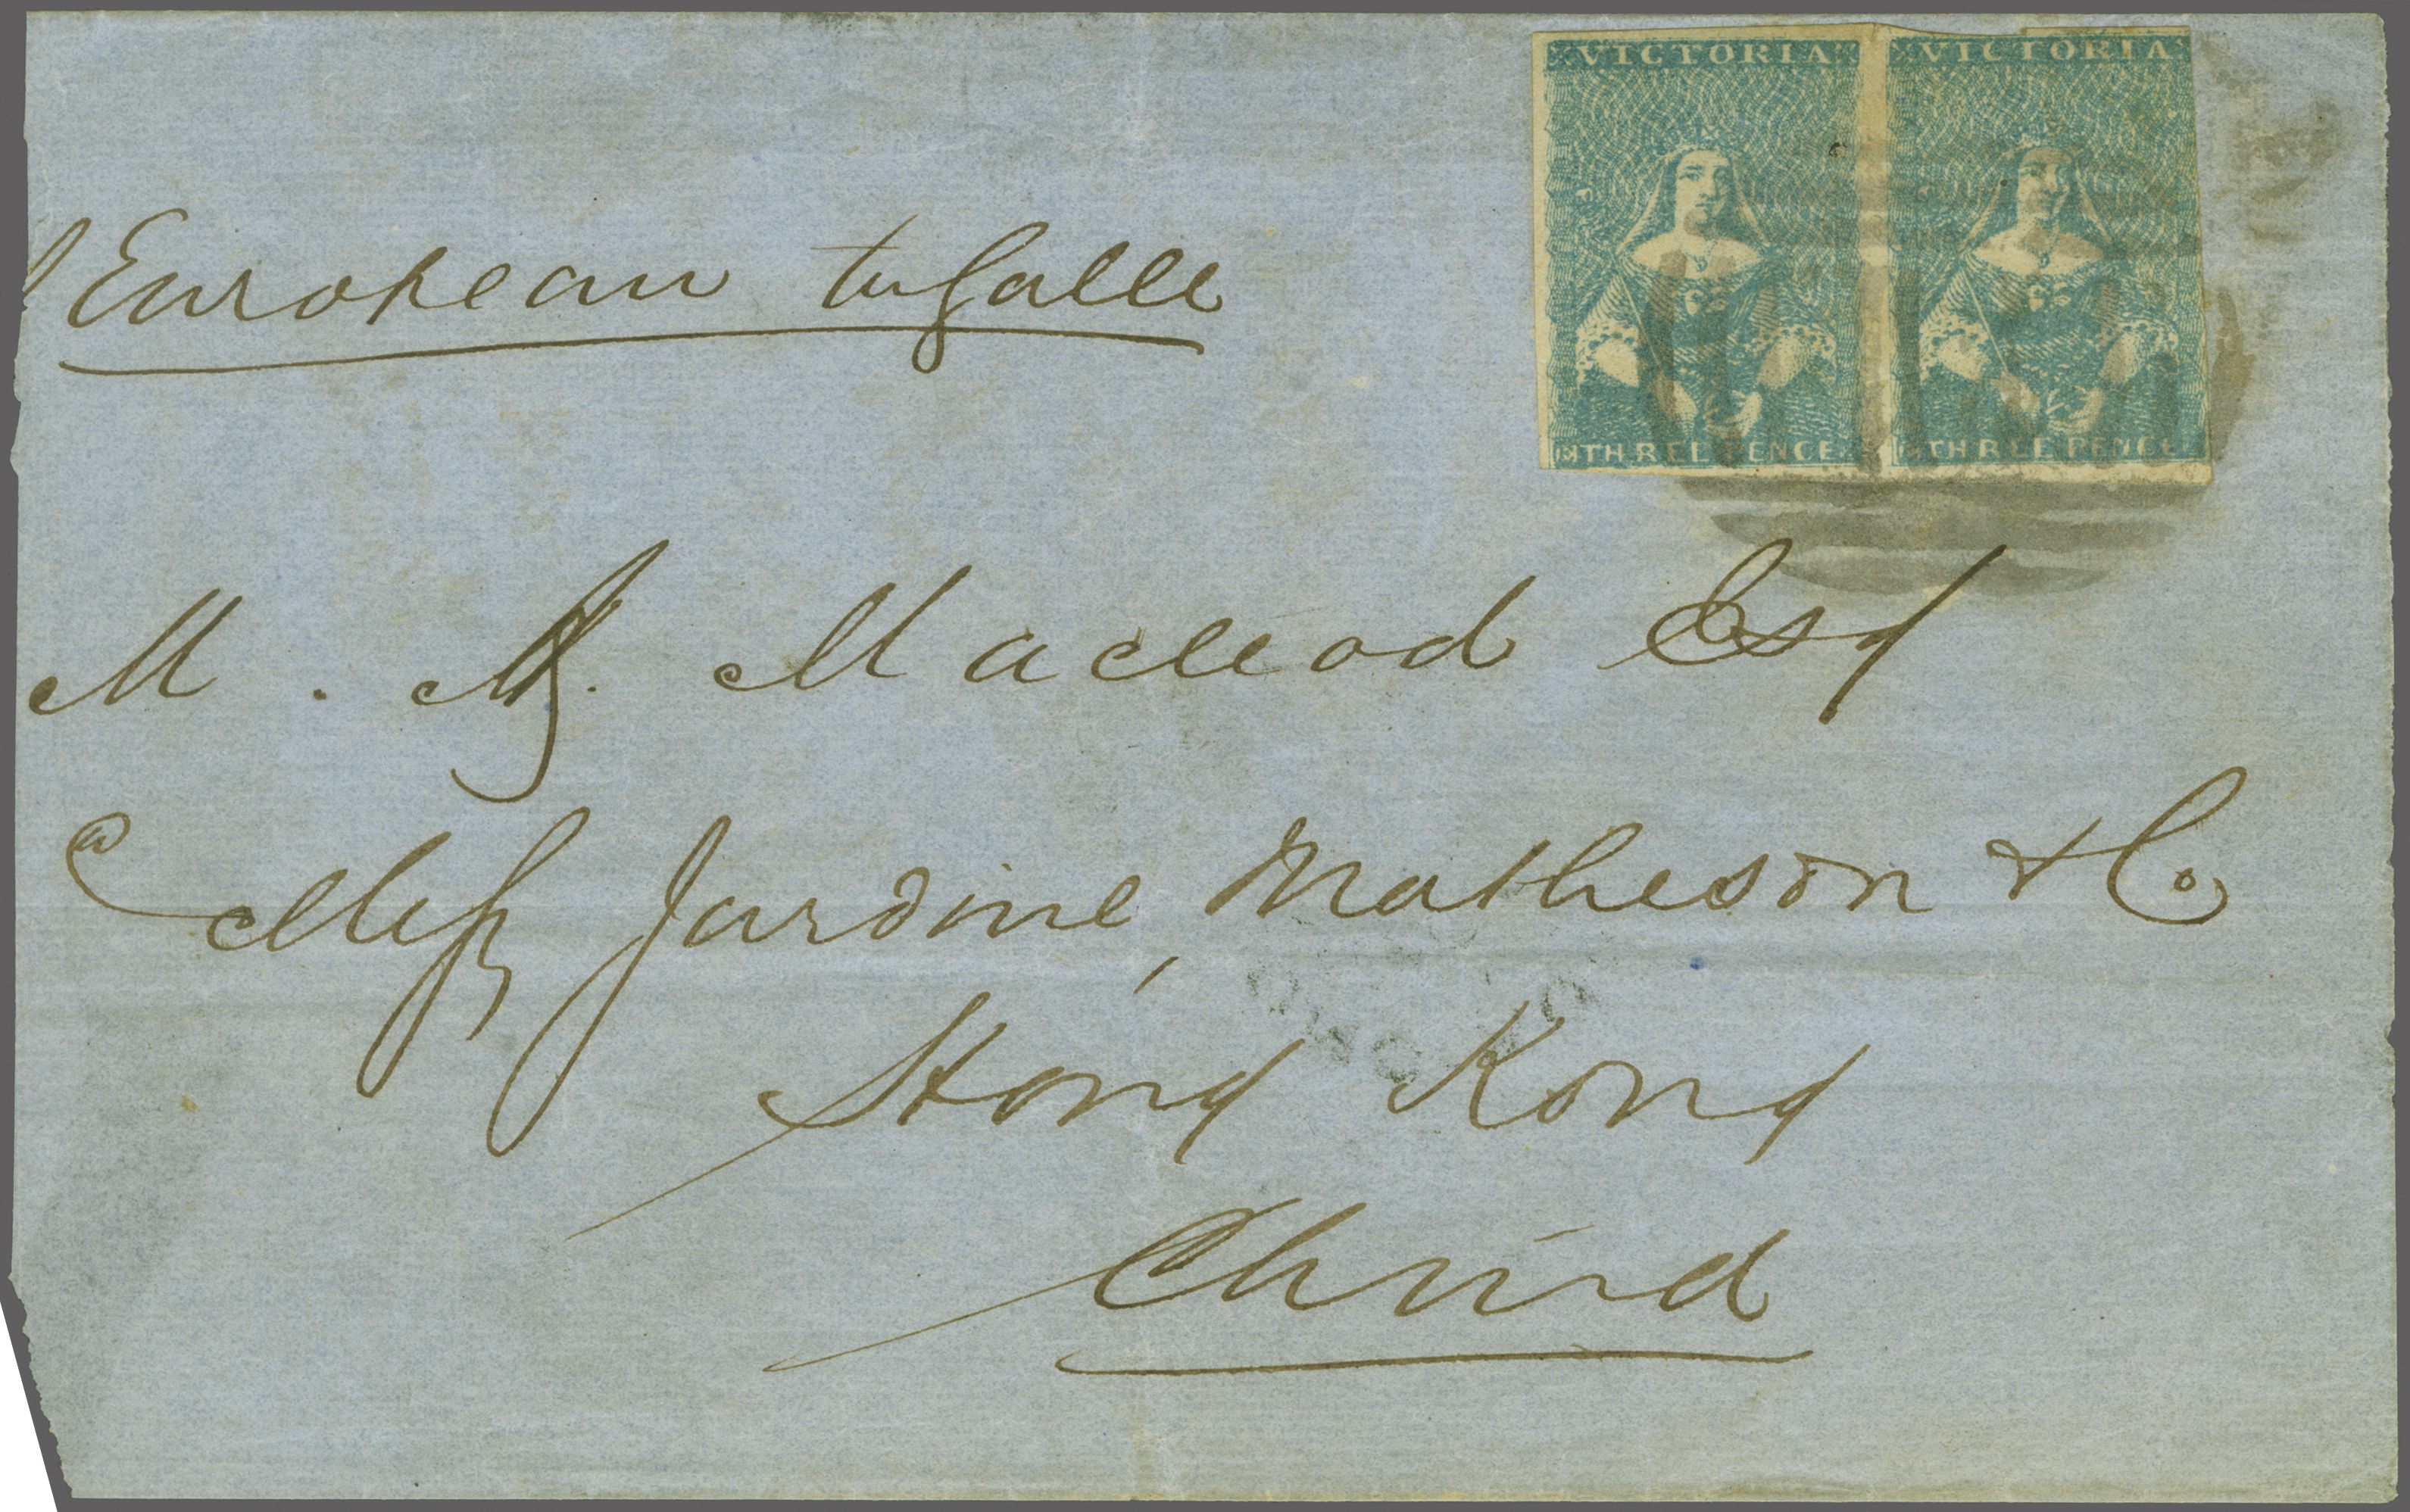 VICTORIA VICTORIA
THREE PENCE THREE PENCE
European to Galle
M. A. Macleod Esq
Messrs Jardine, Matheson & Co
Hong Kong
China